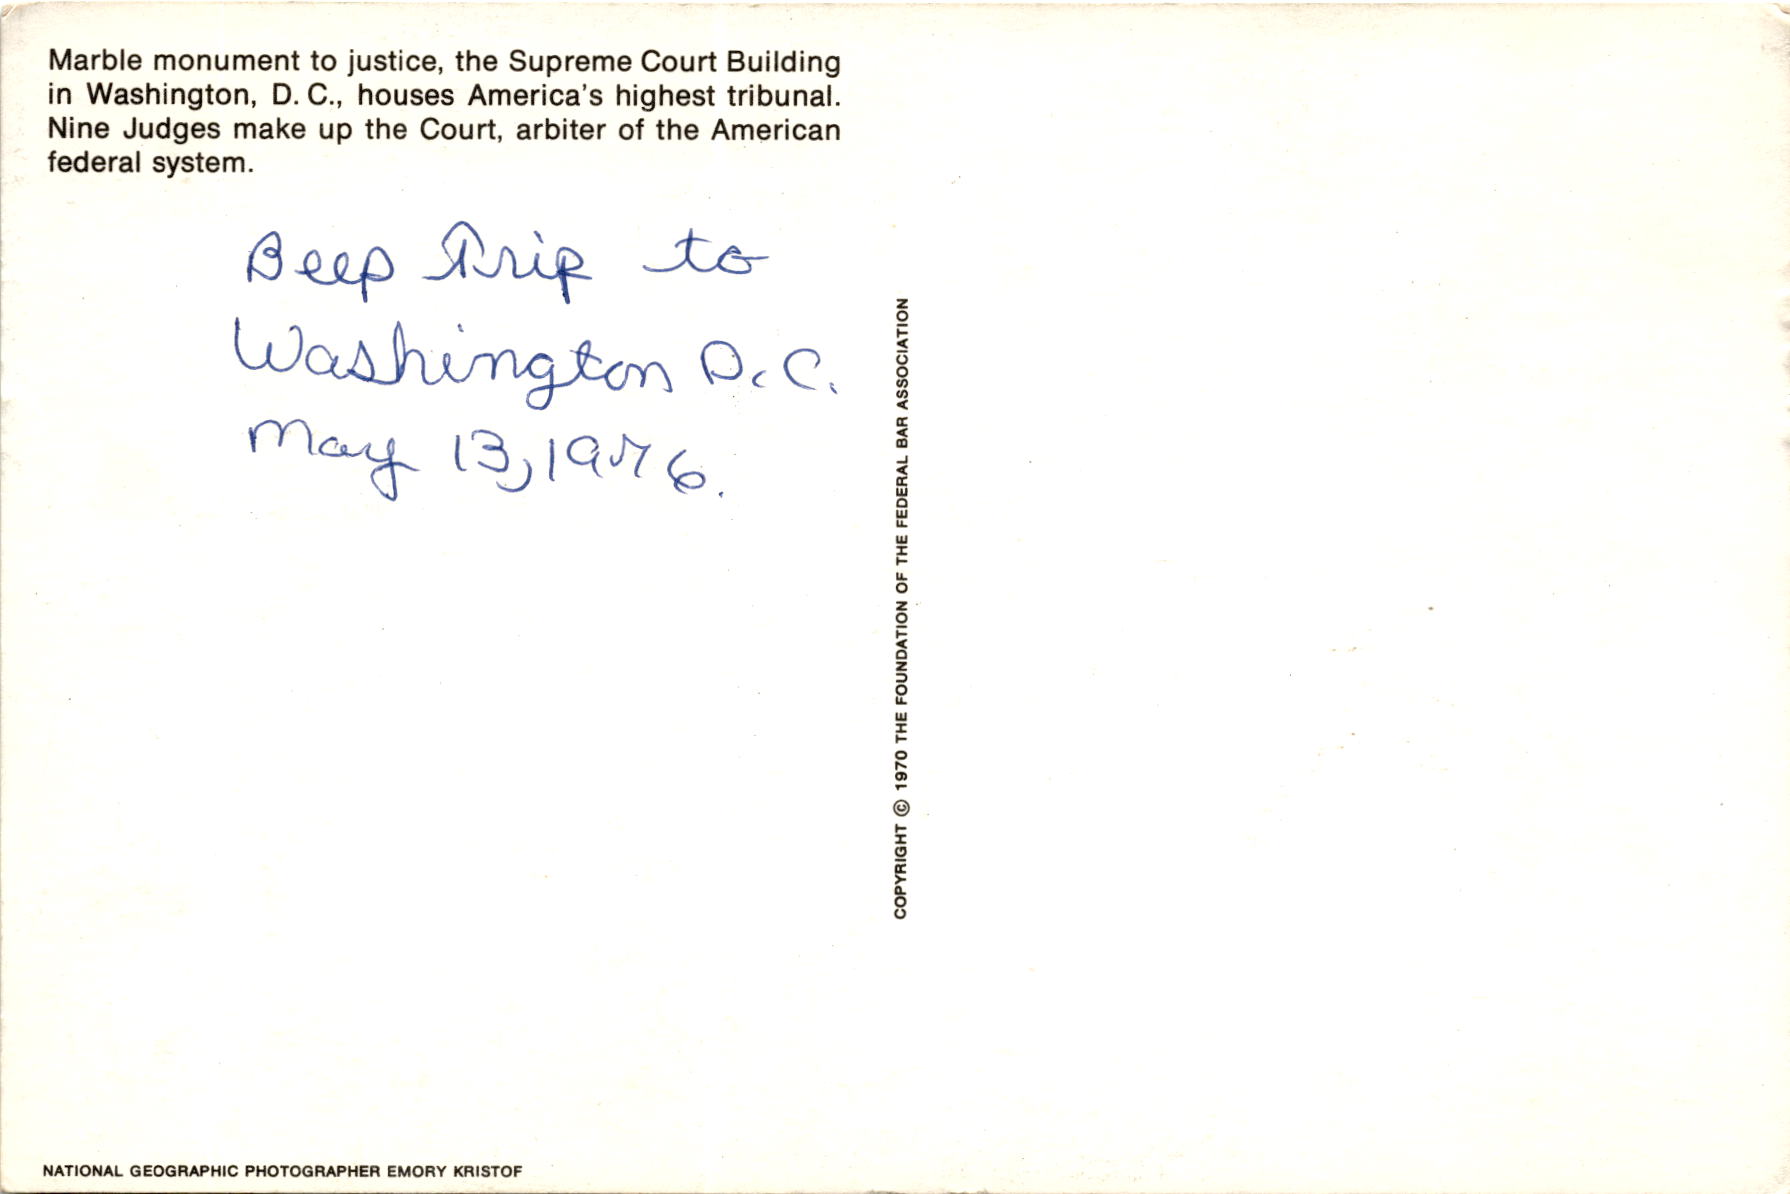 Marble monument to justice, the Supreme Court Building
in Washington, D. C., houses America's highest tribunal.
Nine Judges make up the Court, arbiter of the American
federal system.
Beep Trip to
Washington D.C.
May 13, 1976.
COPYRIGHT © 1970 THE FOUNDATION OF THE FEDERAL BAR ASSOCIATION
NATIONAL GEOGRAPHIC PHOTOGRAPHER EMORY KRISTOF